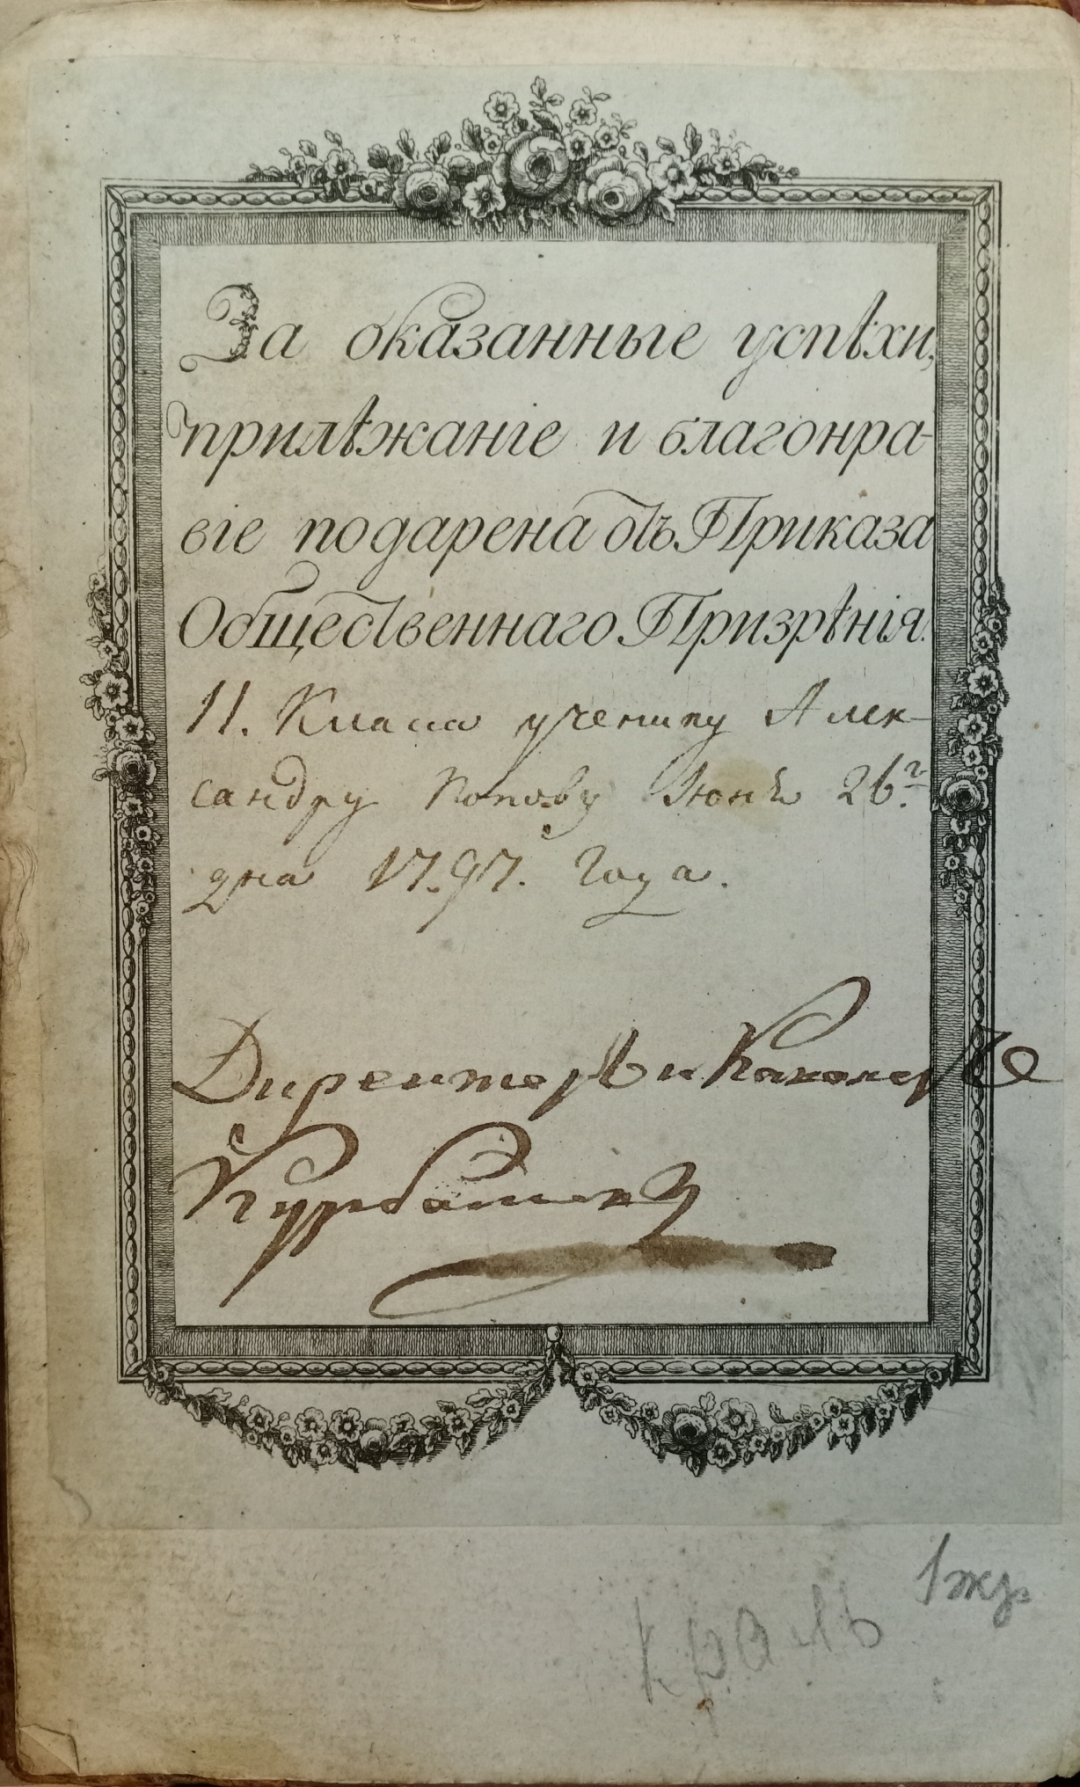 За оказанные успѣхи,
прилѣжаніе и благонра-
віе подарена отъ Приказа
Общественнаго Призрѣнія.
11. Класа ученику Алек-
сандру Попову Іюня 26го
дня 1797. Года.
Директоръ и Кавалеръ
Курбатовъ
1 экз.
Краль